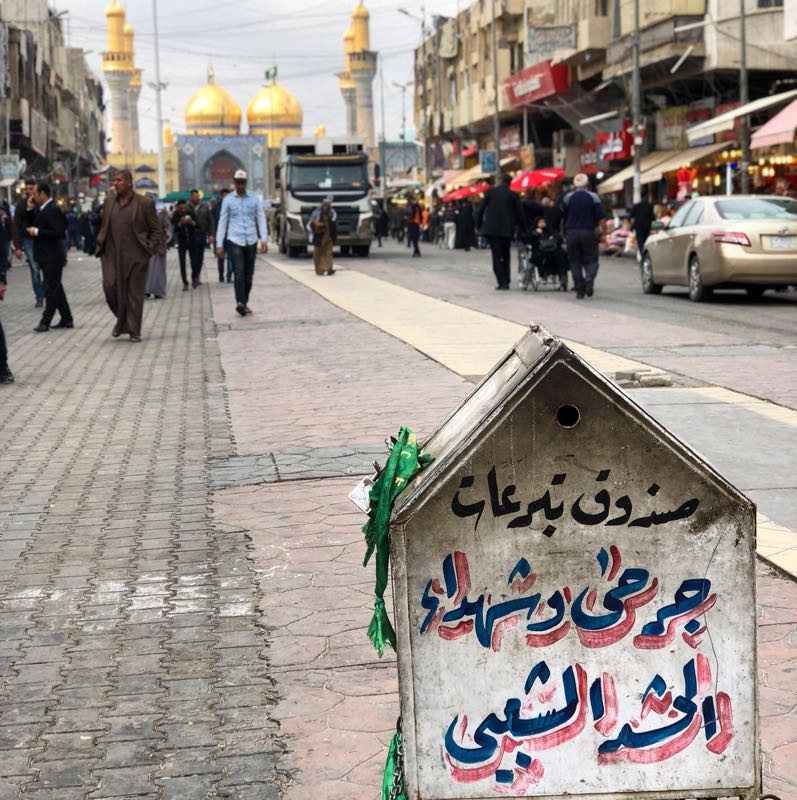 صندوق تبرعات
جرحى وشهداء
الحشد الشعبي